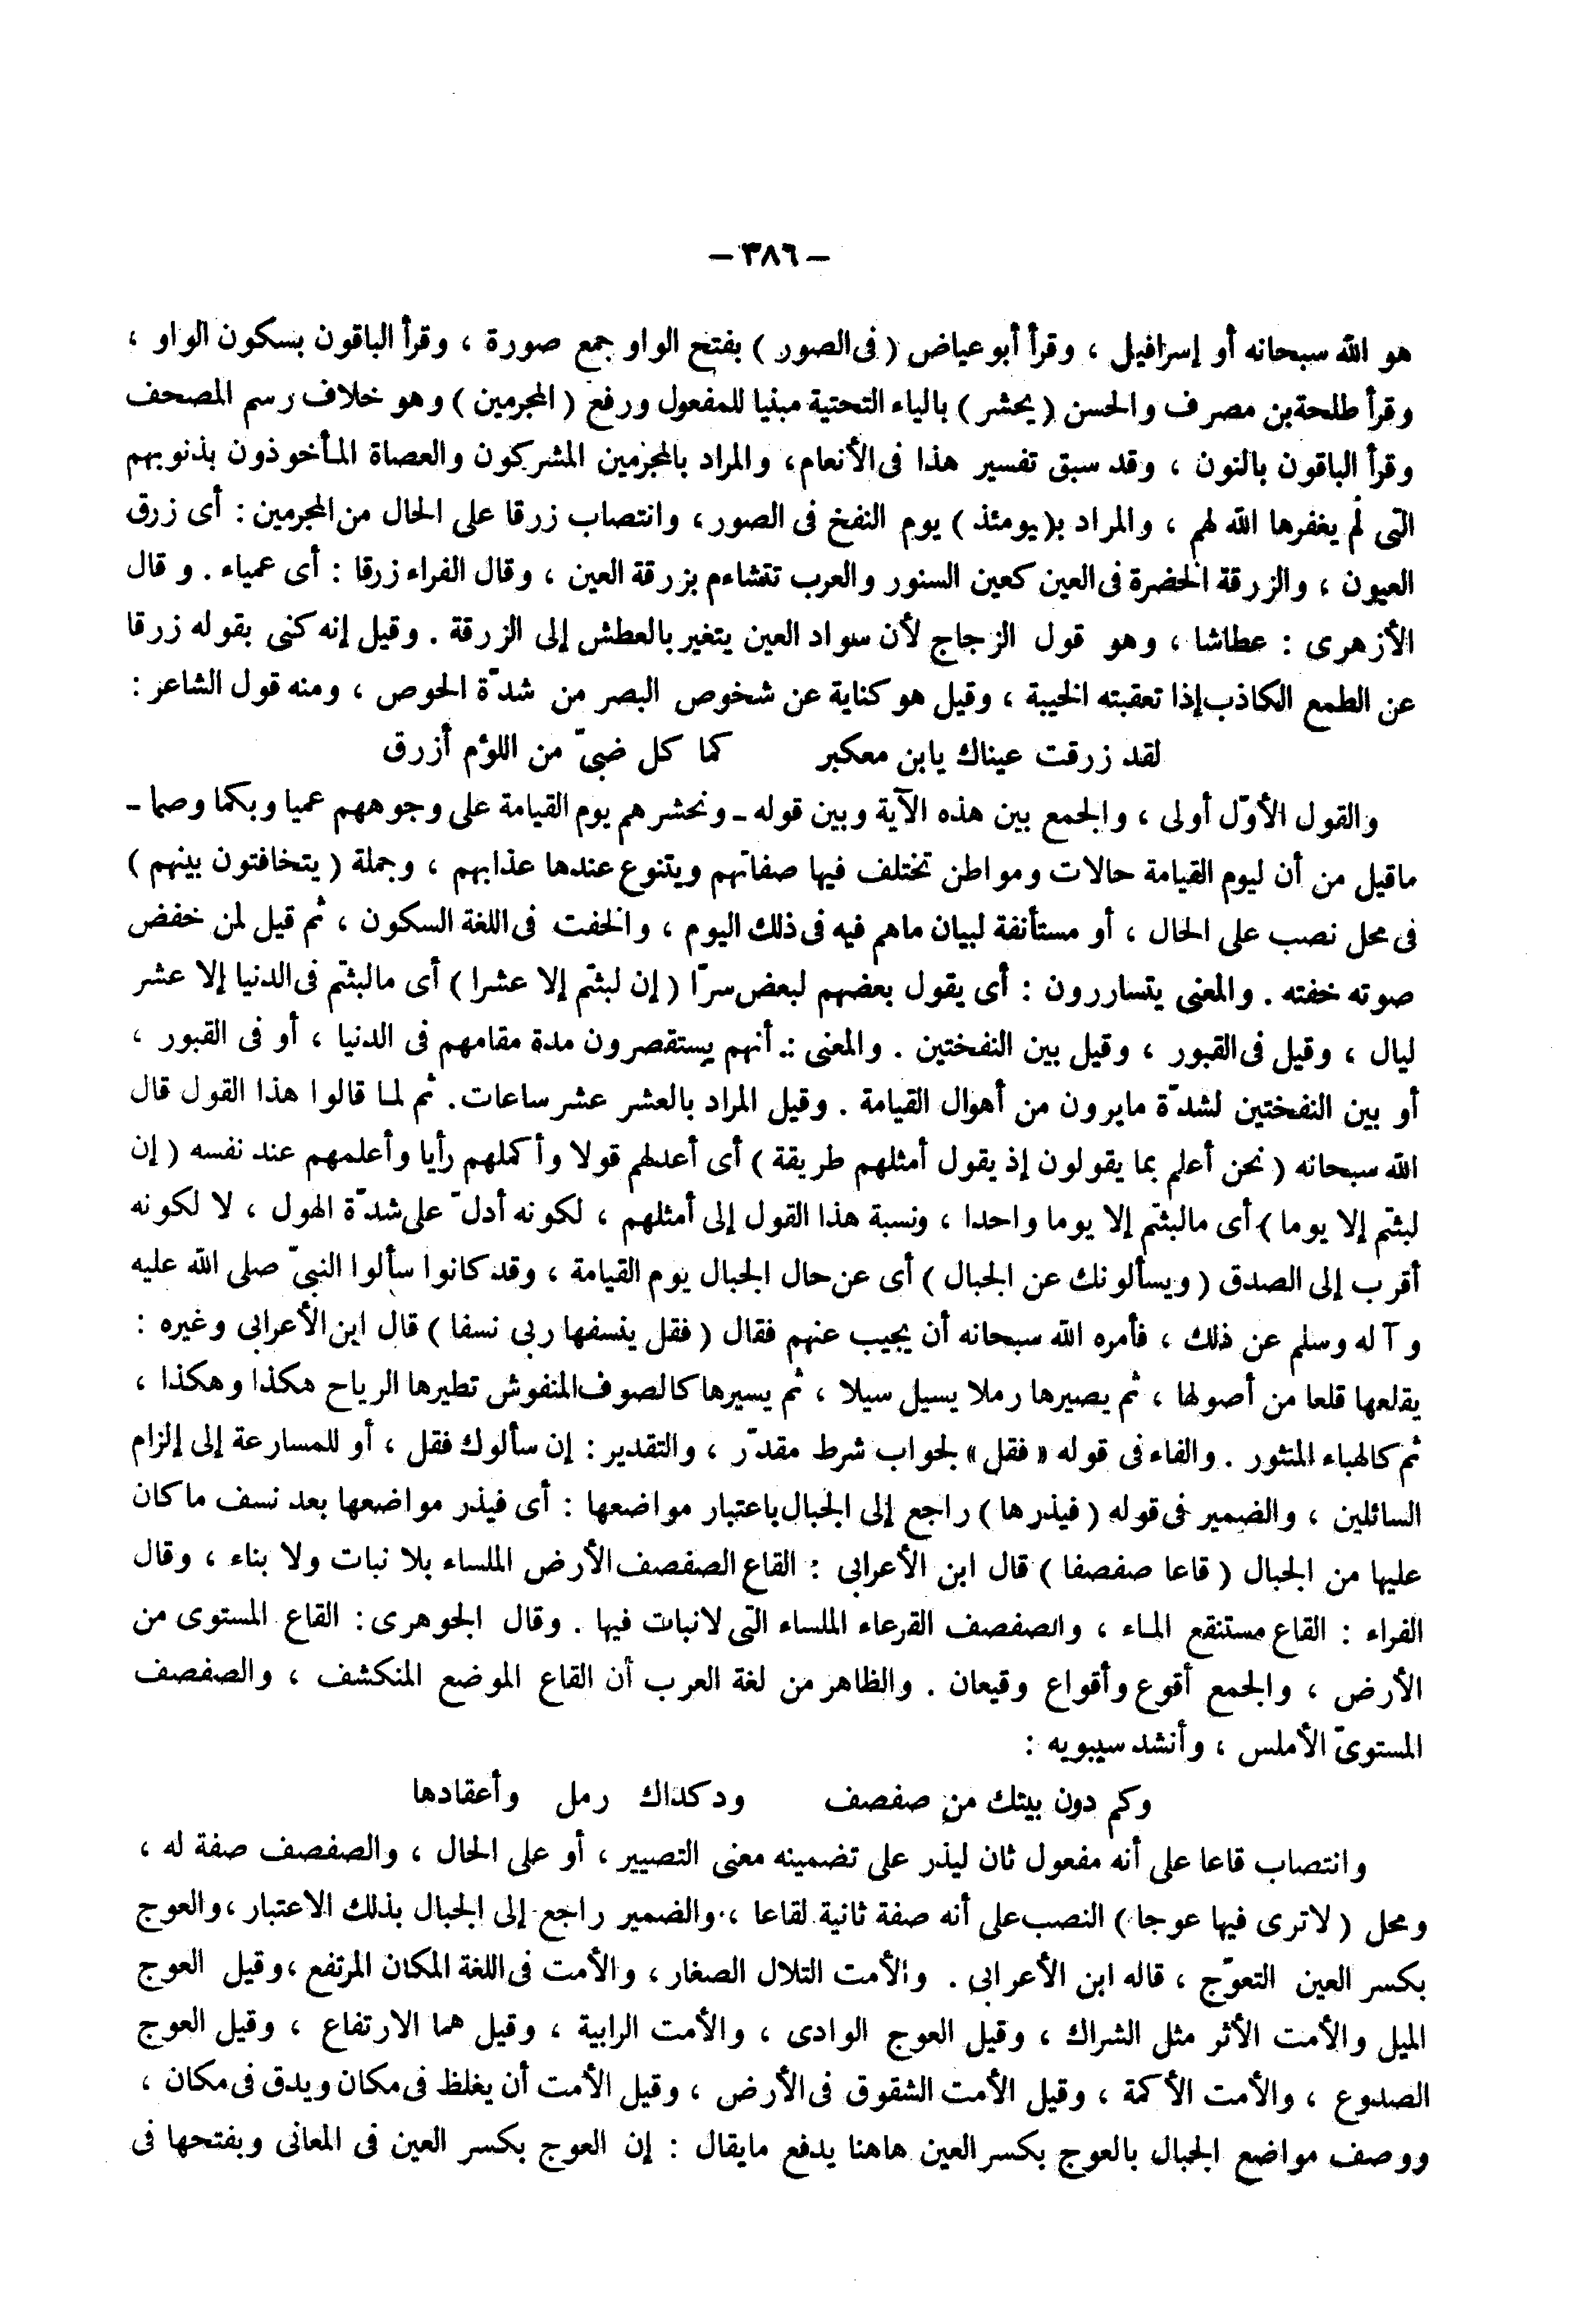 – ٣٨٦ –
هو الله سبحانه أو إسرافيل ، وقرأ أبو عياض ( فى الصور ) بفتح الواو جمع صورة ، وقرأ الباقون بسكون الواو ،
وقرأ طلحة بن مصرف والحسن ( يحشر ) بالياء التحتية مبنيا للمفعول ورفع ( المجرمين ) وهو خلاف رسم المصحف
وقرأ الباقون بالنون ، وقد سبق تفسير هذا فى الأنعام، والمراد بالمجرمين المشركون والعصاة المأخوذون بذنوبهم
التى لم يغفرها الله لهم ، والمراد بـ( يومئذ ) يوم النفخ فى الصور، وانتصاب زرقا على الحال من المجرمين : أى زرق
العيون ، والزرقة الخضرة فى العين كعين السنور والعرب تتشاءم بزرقة العين ، وقال الفراء زرقا : أى عمياء . وقال
الأزهرى : عطاشا ، وهو قول الزجاج لأن سواد العين يتغير بالعطش إلى الزرقة . وقيل إنه كنى بقوله زرقا
عن الطمع الكاذب إذا تعقبته الخيبة ، وقيل هو كناية عن شخوص البصر من شدّة الحوص ، ومنه قول الشاعر :
لقد زرقت عيناك يابن معكبر كما كل ضبىّ من اللؤم أزرق
والقول الأوّل أولى ، والجمع بين هذه الآية وبين قوله ـ ونحشرهم يوم القيامة على وجوههم عميا وبكما وصما ـ
ماقيل من أن ليوم القيامة حالات ومواطن تختلف فيها صفاتهم ويتنوع عندها عذابهم ، وجملة ( يتخافتون بينهم )
فى محل نصب على الحال ، أو مستأنفة لبيان ماهم فيه فى ذلك اليوم ، والخفت فى اللغة السكون ، ثم قيل لمن خفض
صوته خفته . والمعنى يتساررون : أى يقول بعضهم لبعض سرّا ( إن لبثتم إلا عشرا ) أى مالبثتم فى الدنيا إلا عشر
ليال ، وقيل فى القبور ، وقيل بين النفختين . والمعنى : أنهم يستقصرون مدة مقامهم فى الدنيا ، أو فى القبور ،
أو بين النفختين لشدّة مايرون من أهوال القيامة . وقيل المراد بالعشر عشر ساعات. ثم لما قالوا هذا القول قال
الله سبحانه ( نحن أعلم بما يقولون إذ يقول أمثلهم طريقة ) أى أعدلهم قولا وأكملهم رأيا وأعلمهم عند نفسه ( إن
لبثتم إلا يوما ) أى مالبثتم إلا يوما واحدا ، ونسبة هذا القول إلى أمثلهم ، لكونه أدلّ على شدّة الهول ، لا لكونه
أقرب إلى الصدق ( ويسألونك عن الجبال ) أى عن حال الجبال يوم القيامة ، وقد كانوا سألوا النبىّ صلى الله عليه
وآله وسلم عن ذلك ، فأمره الله سبحانه أن يجيب عنهم فقال ( فقل ينسفها ربى نسفا ) قال ابن الأعرابى وغيره :
يقلعها قلعا من أصولها ، ثم يصيرها رملا يسيل سيلا ، ثم يسيرها كالصوف المنفوش تطيرها الرياح هكذا وهكذا ،
ثم كالهباء المنثور . والفاء فى قوله « فقل » لجواب شرط مقدّر ، والتقدير : إن سألوك فقل ، أو للمسارعة إلى إلزام
السائلين ، والضمير فى قوله ( فيذرها ) راجع إلى الجبال باعتبار مواضعها : أى فيذر مواضعها بعد نسف ما كان
عليها من الجبال ( قاعا صفصفا ) قال ابن الأعرابى : القاع الصفصف الأرض الملساء بلا نبات ولا بناء ، وقال
الفراء : القاع مستنقع الماء ، والصفصف القرعاء الملساء التى لانبات فيها . وقال الجوهرى : القاع المستوى من
الأرض ، والجمع أقوع وأقواع وقيعان . والظاهر من لغة العرب أن القاع الموضع المنكشف ، والصفصف
المستوىّ الأملس ، وأنشد سيبويه :
وكم دون بيتك من صفصف ودكداك رمل وأعقادها
وانتصاب قاعا على أنه مفعول ثان ليذر على تضمينه معنى التصيير ، أو على الحال ، والصفصف صفة له ،
ومحل ( لاترى فيها عوجا ) النصب على أنه صفة ثانية لقاعا ، والضمير راجع إلى الجبال بذلك الاعتبار ، والعوج
بكسر العين التعوّج ، قاله ابن الأعرابى . والأمت التلال الصغار ، والأمت فى اللغة المكان المرتفع ، وقيل العوج
الميل والأمت الأثر مثل الشراك ، وقيل العوج الوادى ، والأمت الرابية ، وقيل هما الارتفاع ، وقيل العوج
الصدوع ، والأمت الأكمة ، وقيل الأمت الشقوق فى الأرض ، وقيل الأمت أن يغلظ فى مكان ويدق فى مكان ،
ووصف مواضع الجبال بالعوج بكسر العين هاهنا يدفع مايقال : إن العوج بكسر العين فى المعانى وبفتحها فى